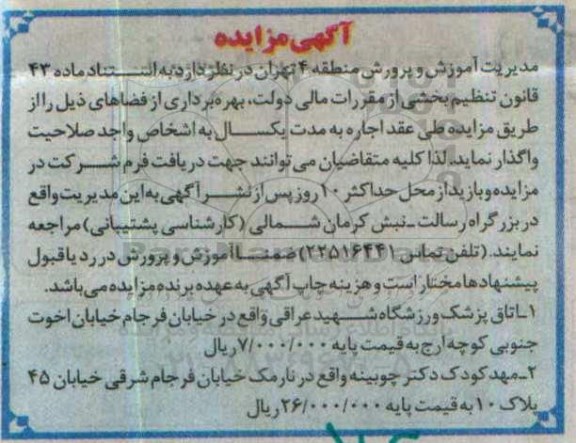 آگهی مزایده
مدیریت آموزش و پرورش منطقه ۴ تهران در نظر دارد به استناد ماده ۴۳
قانون تنظیم بخشی از مقررات مالی دولت، بهره برداری از فضاهای ذیل را از
طریق مزایده طی عقد اجاره به مدت یکسال به اشخاص واجد صلاحیت
واگذار نماید. لذا کلیه متقاضیان می توانند جهت دریافت فرم شرکت در
مزایده و بازدید از محل حداکثر ۱۰ روز پس از نشر آگهی به این مدیریت واقع
در بزرگراه رسالت ـ نبش کرمان شمالی (کارشناسی پشتیبانی) مراجعه
نمایند. (تلفن تماس ۲۲۵۱۶۴۴۱) ضمنا آموزش و پرورش در رد یا قبول
پیشنهادها مختار است و هزینه چاپ آگهی به عهده برنده مزایده می باشد.
۱ـ اتاق پزشک ورزشگاه شهید عراقی واقع در خیابان فرجام خیابان اخوت
جنوبی کوچه ارج به قیمت پایه ۷/۰۰۰/۰۰۰ ریال
۲ـ مهد کودک دکتر چوبینه واقع در نارمک خیابان فرجام شرقی خیابان ۴۵
پلاک ۱۰ به قیمت پایه ۲۶/۰۰۰/۰۰۰ ریال